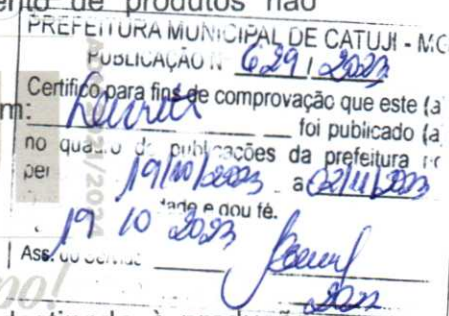 ento de produtos não
PREFEITURA MUNICIPAL DE CATUJI - MG
PUBLICAÇÃO N 629 / 2023
Certifico para fins de comprovação que este (a
m:
foi publicado (a
no quadro de publicações da prefeitura
per 19/10/2023 a 02/11/2023
dade e dou fé.
19 10 2023
Ass. do Servidor
2021/2024